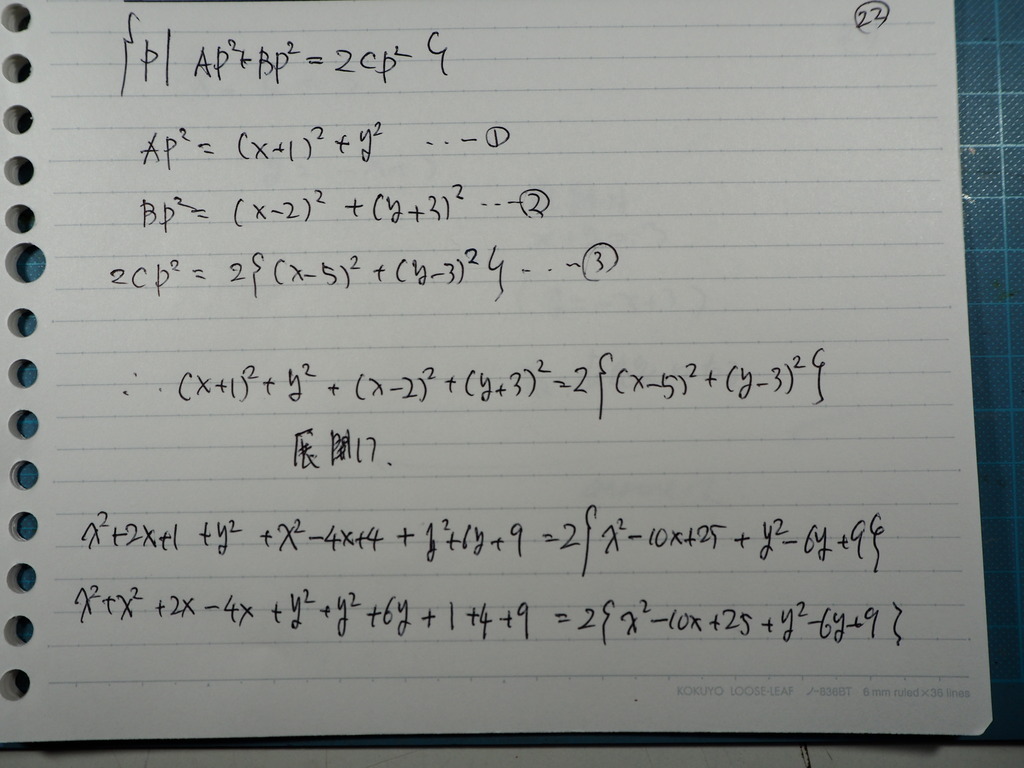 ㉓
{P| AP²+BP² = 2CP²}
AP² = (x+1)² + y² ...-①
BP² = (x-2)² + (y+3)² ...-②
2CP² = 2{(x-5)² + (y-3)²} ...-③
∴ (x+1)² + y² + (x-2)² + (y+3)² = 2{(x-5)² + (y-3)²}
展開け.
x²+2x+1 + y² + x²-4x+4 + y²+6y+9 = 2{x²-10x+25 + y²-6y+9}
x²+x² +2x-4x + y²+y² +6y+1+4+9 = 2{x²-10x+25+y²-6y+9}
KOKUYO LOOSE-LEAF ノ-836BT 6 mm ruled×36 lines